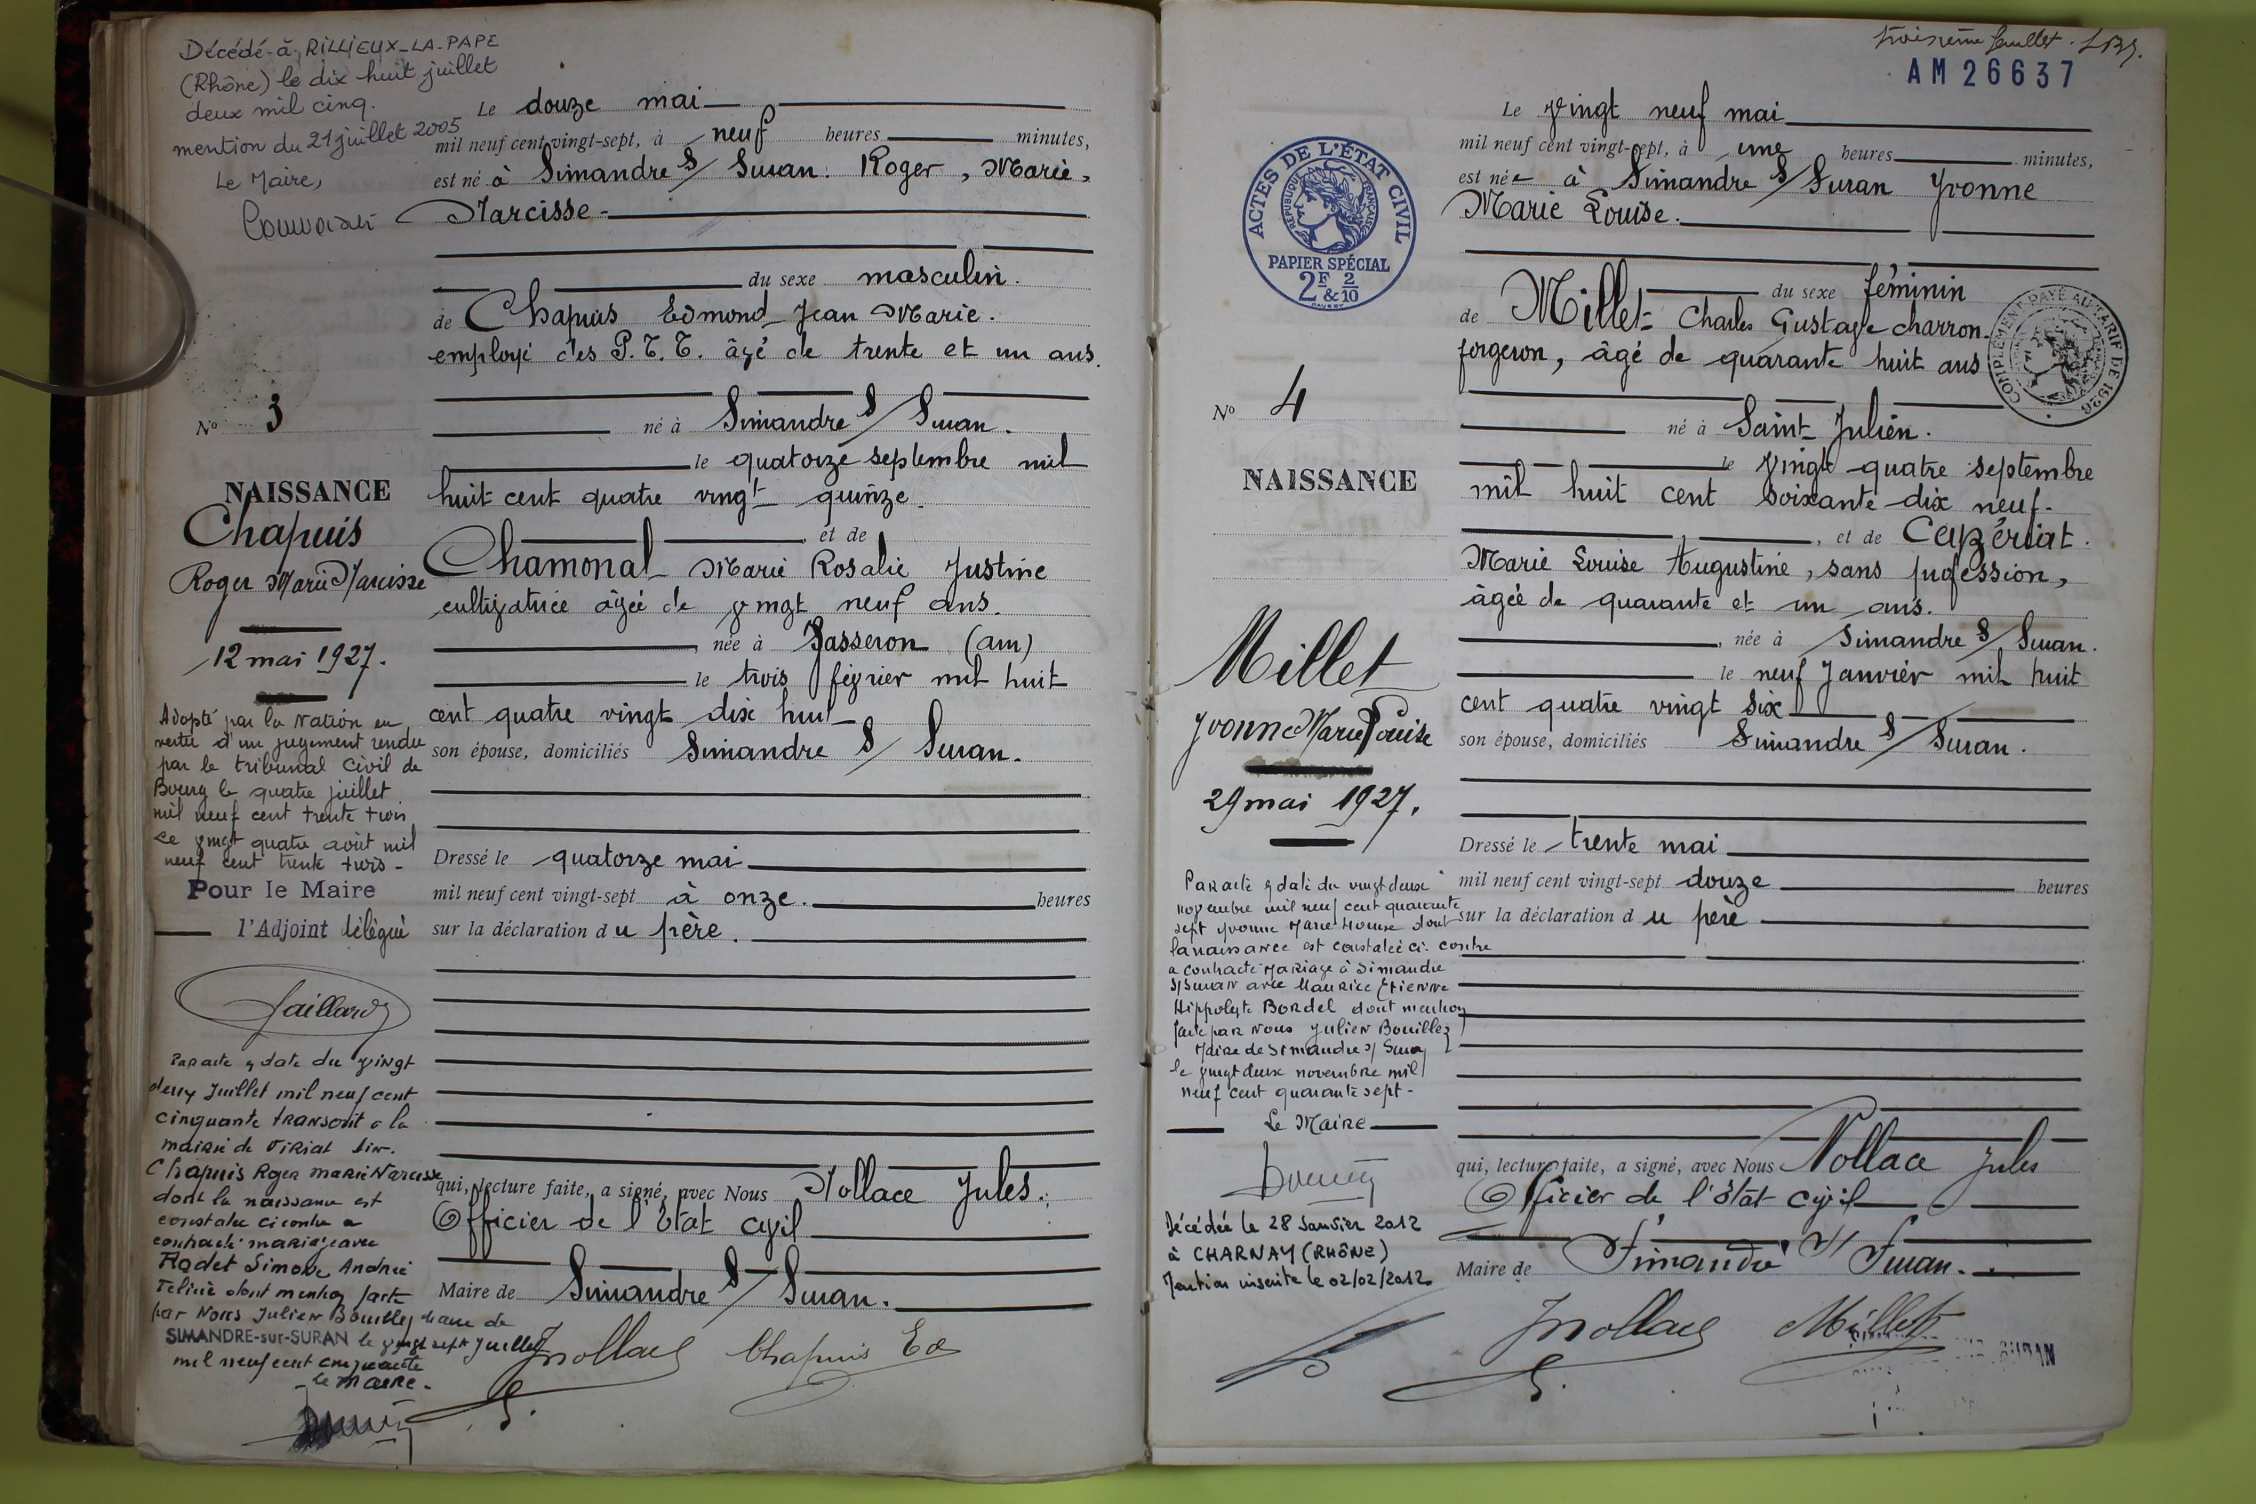 Décédé à RILLIEUX-LA-PAPE
(Rhône) le dix huit juillet
deux mil cinq.
mention du 21 juillet 2005
Le Maire,
N° 3
NAISSANCE
Chapuis
Roger Marie Narcisse
12 mai 1927.
Adopté par la Nation en
vertu d'un jugement rendu
par le tribunal Civil de
Bourg le quatre juillet
mil neuf cent trente trois
Le vingt quatre août mil
neuf cent trente trois -
Pour le Maire
l'Adjoint délégué
Par acte en date du vingt
deux Juillet mil neuf cent
cinquante transcrit à la
mairie de Viriat
Chapuis Roger Marie Narcisse
dont la naissance est
constatée ci contre a
contracté mariage avec
Rodet Simone Andrée
dont mention faite
par Nous Julien Bouillez Maire de
SIMANDRE-sur-SURAN le vingt sept Juillet
mil neuf cent cinquante
Le Maire.
Le douze mai
mil neuf cent vingt-sept, à neuf heures minutes,
est né à Simandre s/ Suran. Roger, Marie,
Narcisse
du sexe masculin.
de Chapuis Edmond Jean Marie.
employé des P.T.T. âgé de trente et un ans.
né à Simandre s/ Suran.
le quatorze septembre mil
huit cent quatre vingt quinze.
et de
Chamonal Marie Rosalie Justine
cultivatrice âgée de vingt neuf ans.
née à Jasseron (Ain)
le trois février mil huit
cent quatre vingt dix huit
son épouse, domiciliés Simandre s/ Suran.
Dressé le quatorze mai
mil neuf cent vingt-sept à onze. heures
sur la déclaration du père.
qui, lecture faite, a signé, avec Nous Nollace Jules.
Officier de l'état civil
Maire de Simandre s/ Suran.
JNollace Chapuis Ed
troisième feuillet.
AM 26637
ACTES DE L'ÉTAT CIVIL
RÉPUBLIQUE FRANÇAISE
PAPIER SPÉCIAL
2F & 2/10
COMPLÉMENT PAYÉ AU TARIF DE 1926
N° 4
NAISSANCE
Millet
Yvonne Marie Louise
29 mai 1927.
Par acte en date du vingt deux
novembre mil neuf cent quarante
sept Yvonne Marie Louise dont
la naissance est constatée ci-contre
a contracté Mariage à Simandre
s/Suran avec Maurice Etienne
Hippolyte Bordel dont mention
faite par Nous Julien Bouillez
Maire de Simandre s/ Suran
le vingt deux novembre mil
neuf cent quarante sept -
Le Maire
Décédée le 28 Janvier 2012
à CHARNAY (RHÔNE)
Mention inscrite le 02/02/2012
Le vingt neuf mai
mil neuf cent vingt-sept, à une heures minutes,
est née à Simandre s/ Suran Yvonne
Marie Louise.
du sexe féminin
de Millet Charles Gustave charron
forgeron, âgé de quarante huit ans
né à Saint Julien.
le vingt quatre septembre
mil huit cent soixante dix neuf.
, et de Cazériat.
Marie Louise Augustine, sans profession,
âgée de quarante et un ans.
, née à Simandre s/ Suran.
le neuf Janvier mil huit
cent quatre vingt six
son épouse, domiciliés Simandre s/ Suran.
Dressé le trente mai
mil neuf cent vingt-sept douze heures
sur la déclaration du père
qui, lecture faite, a signé, avec Nous Nollace Jules
Officier de l'état civil
Maire de Simandre s/ Suran.
JNollace Millet